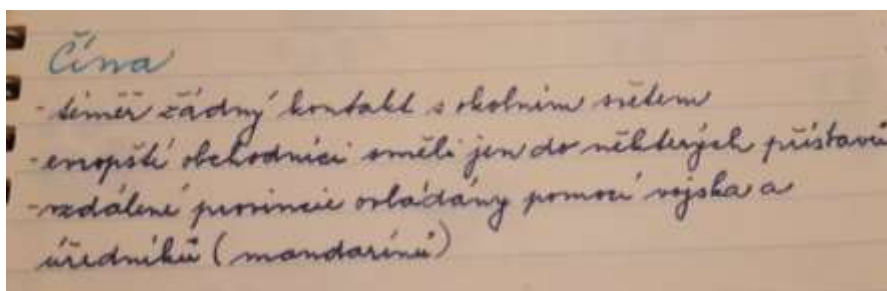 Čína
- téměř žádný kontakt s okolním světem
- evropští obchodníci směli jen do některých přístavů
- vzdálené provincie ovládány pomocí vojska a
úředníků (mandarínů)